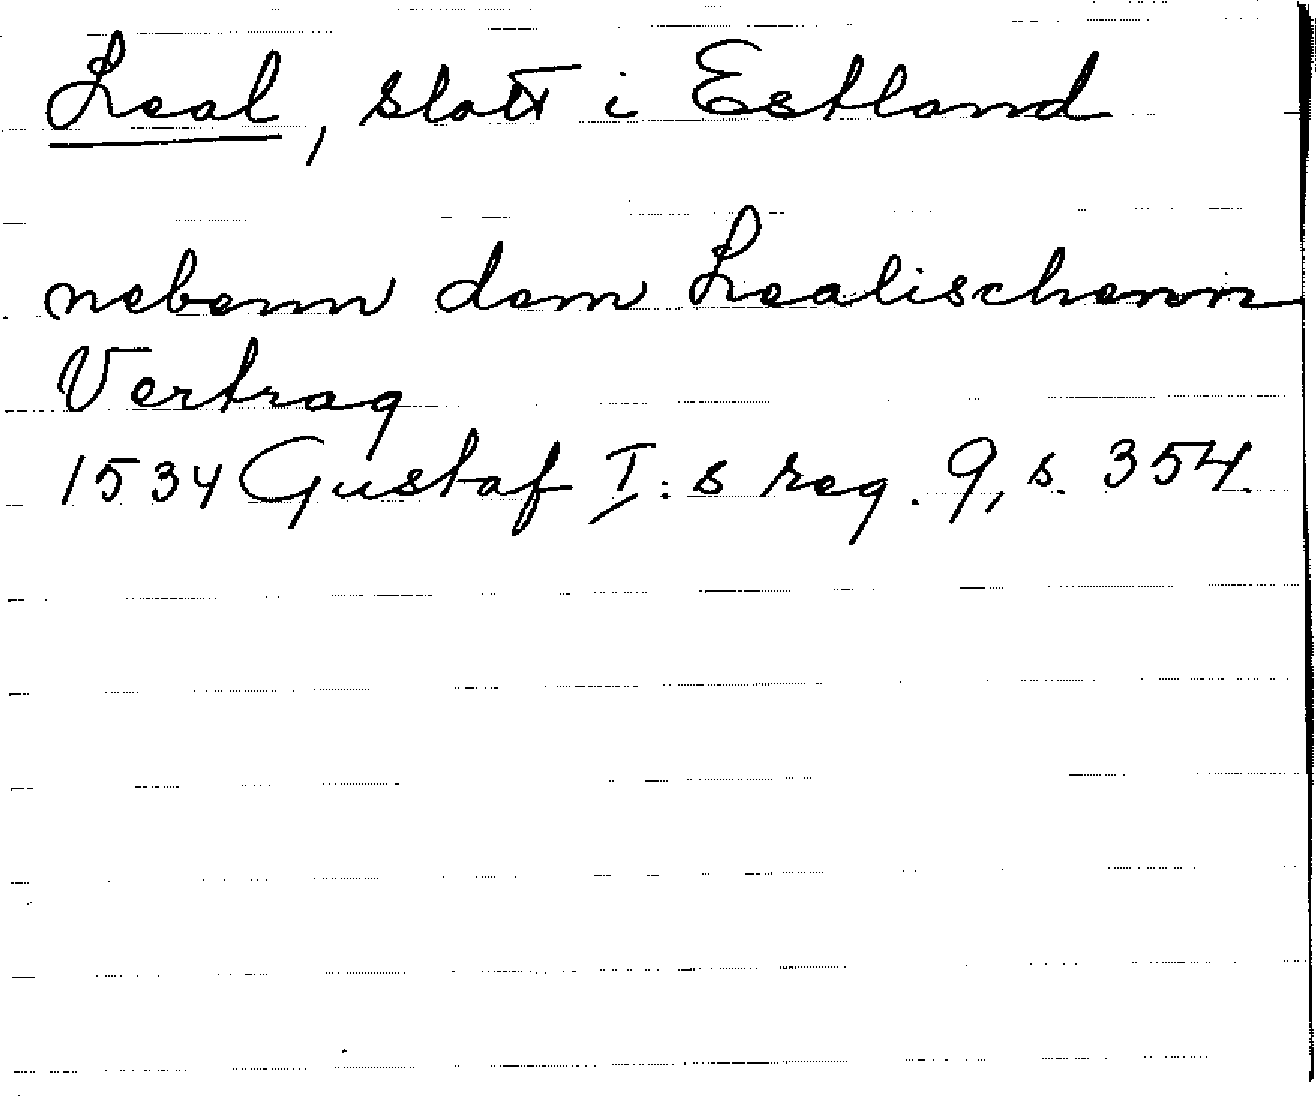 Leal, slott i Estland
nebenn dem Lealischenn
Vertrag
1534 Gustaf I:s reg. 9, s. 354.